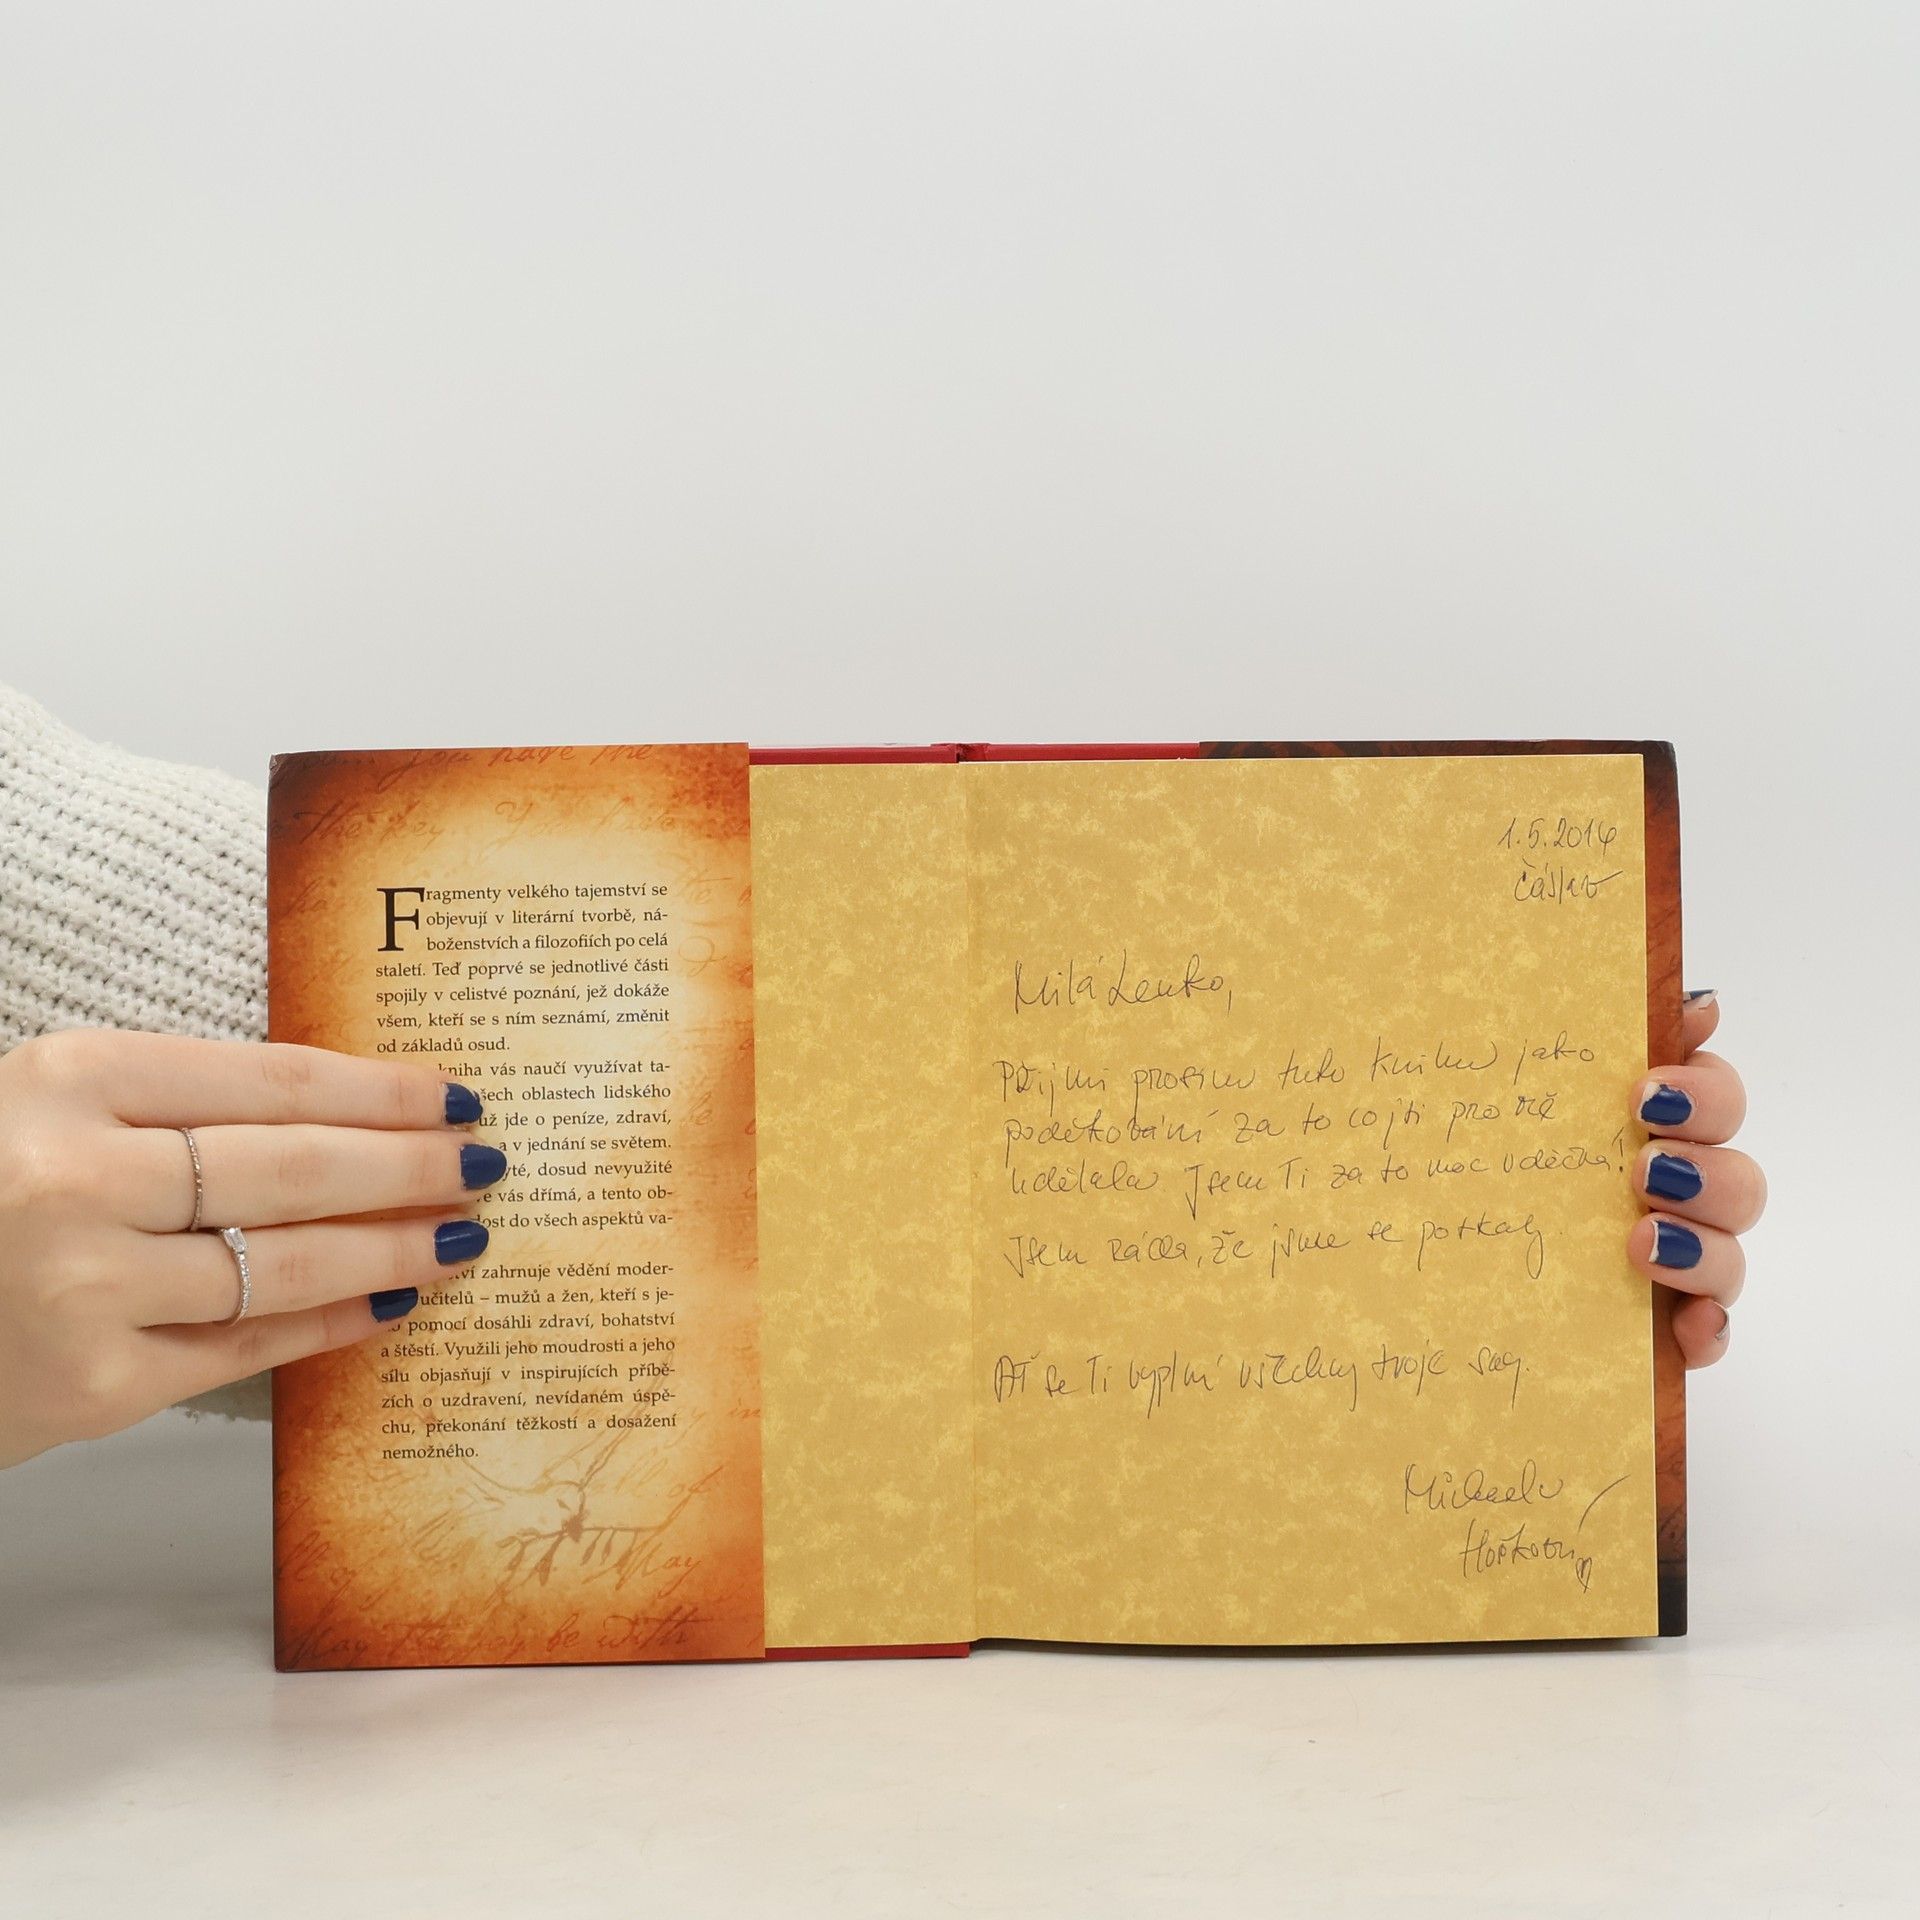 you have the
the key. You have
Fragmenty velkého tajemství se
objevují v literární tvorbě, ná-
boženstvích a filozofiích po celá
staletí. Teď poprvé se jednotlivé části
spojily v celistvé poznání, jež dokáže
všem, kteří se s ním seznámí, změnit
od základů osud.
kniha vás naučí využívat ta-
všech oblastech lidského
už jde o peníze, zdraví,
a v jednání se světem.
yté, dosud nevyužité
ve vás dřímá, a tento ob-
dost do všech aspektů va-
ství zahrnuje vědění moder-
učitelů – mužů a žen, kteří s je-
ho pomocí dosáhli zdraví, bohatství
a štěstí. Využili jeho moudrosti a jeho
sílu objasňují v inspirujících příbě-
zích o uzdravení, nevídaném úspě-
chu, překonání těžkostí a dosažení
nemožného.
all of
May
May the joy be with
1.5.2014
Čáslav
Milá Lenko,
Přijmi prosím tuto knihu jako
poděkování za to co jsi pro mě
udělala. Jsem Ti za to moc vděčná!
Jsem ráda, že jsme se potkaly.
Ať se Ti vyplní všechny tvoje sny.
Michaela